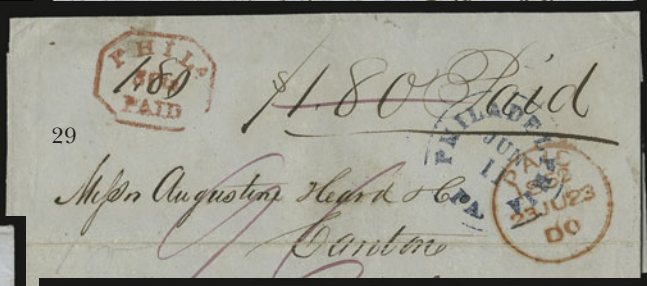 PHILA
1.80
PAID
$1.80 Paid
29
PHILADELPHIA
JUN
11
PA
PAID
23 JU 23
DO
Messrs Augustine Heard & Co
Canton